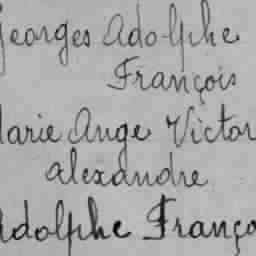 Georges Adolphe
François
Marie Ange Victor
alexandre
Adolphe Franço